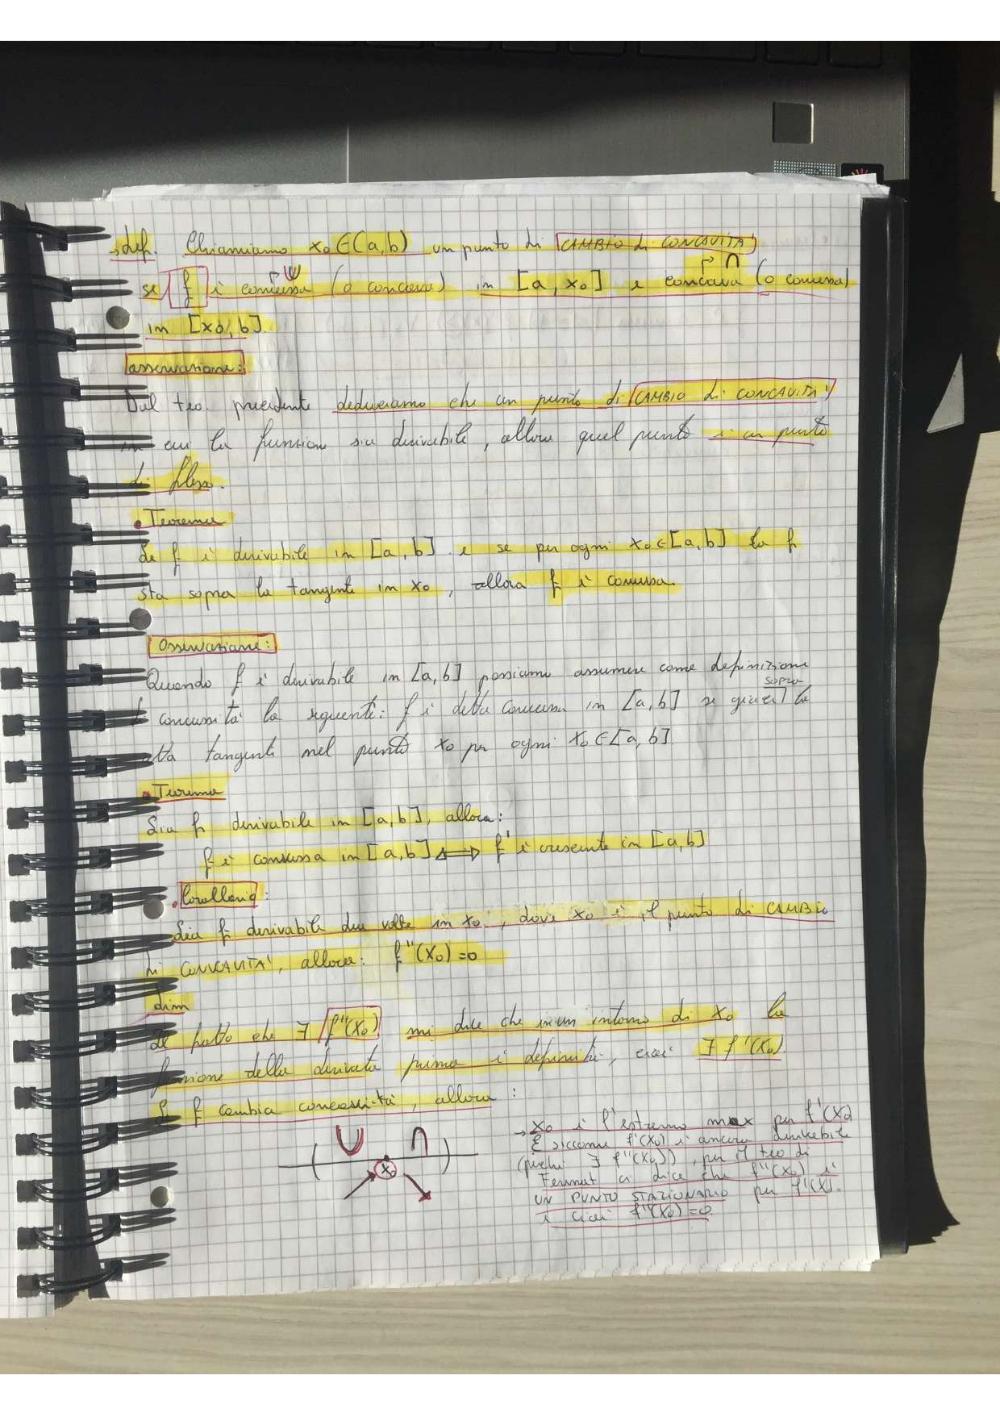 → def. Chiamiamo x₀ ∈ (a,b) un punto di CAMBIO di CONCAVITA'
se f è convessa (o concava) in [a, x₀] e concava (o convessa)
in [x₀, b]
osservazione:
Dal teo. precedente deduciamo che un punto di CAMBIO di CONCAVITA'
in cui la funzione sia derivabile, allora quel punto è un punto
di flesso.
• Teorema
Se f è derivabile in [a, b] e se per ogni x₀ ∈ [a, b] la f
sta sopra la tangente in x₀, allora f è convessa.
Osservazione:
Quando f è derivabile in [a, b] possiamo assumere come definizione
di convessità la seguente: f è detta convessa in [a, b] se giace sopra la
retta tangente nel punto x₀ per ogni x₀ ∈ [a, b]
• Teorema
Sia f derivabile in [a, b], allora:
f è convessa in [a, b] ⟺ f' è crescente in [a, b]
• Corollario:
Sia f derivabile due volte in x₀, dove x₀ è il punto di CAMBIO
di CONCAVITA', allora: f''(x₀)=0
dim
Il fatto che ∃ f''(x₀) mi dice che in un intorno di x₀ la
funzione della derivata prima è definita, cioè ∃ f'(x₀).
Se f cambia concavità, allora:
x₀
→ x₀ è l'estremo max per f'(x₀)
E siccome f'(x₀) è ancora derivabile
(perché ∃ f''(x₀)), per il teo di
Fermat ci dice che f''(x₀) è
UN PUNTO STAZIONARIO per f'(x).
e cioè f''(x₀)=0